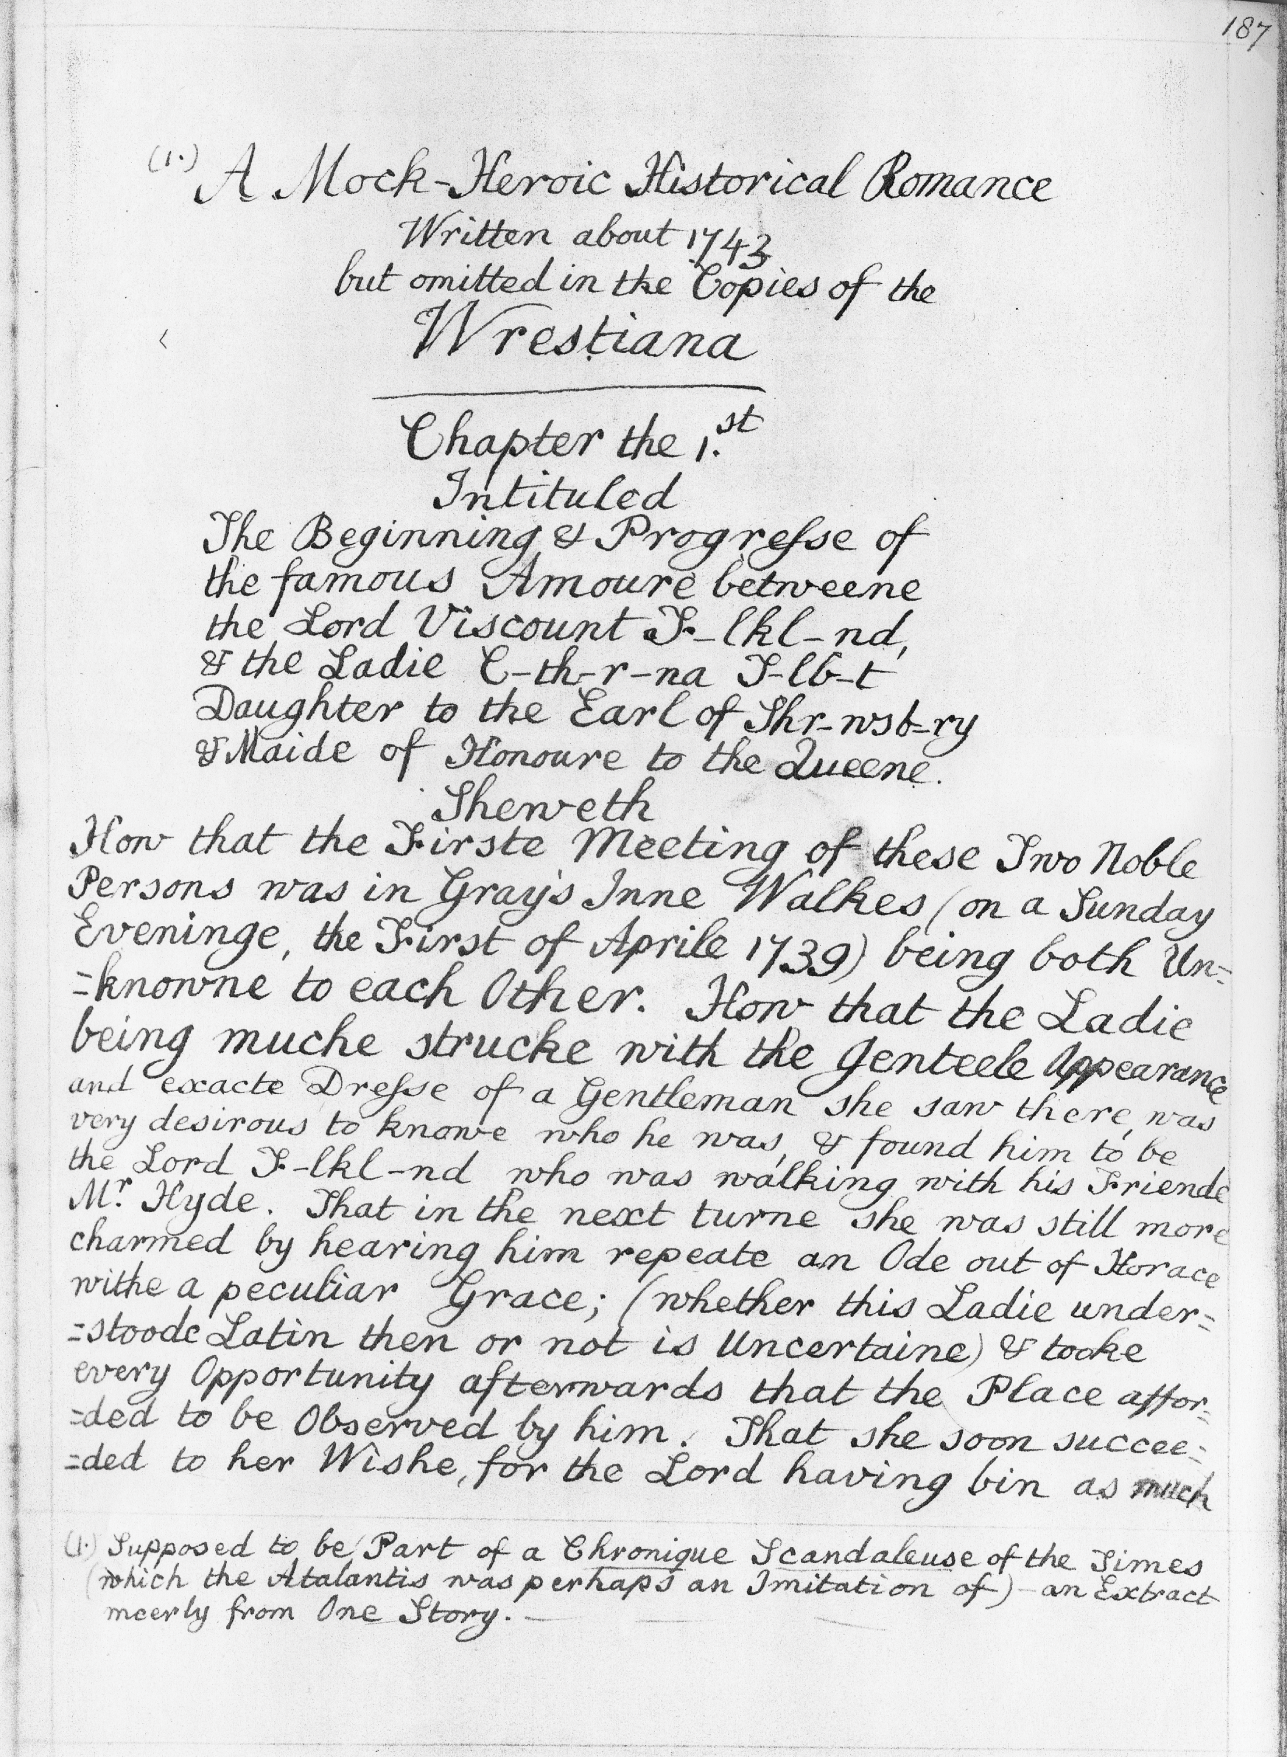 187
(1.) A Mock-Heroic Historical Romance
Written about 1743
but omitted in the Copies of the
Wrestiana
Chapter the 1.st
Intituled
The Beginning & Progresse of
the famous Amoure betweene
the Lord Viscount F-lkl-nd,
& the Ladie C-th-r-na T-lb-t
Daughter to the Earl of Shr-wsb-ry
& Maide of Honoure to the Queene.
Sheweth
How that the Firste Meeting of these Two Noble
Persons was in Gray's Inne Walkes (on a Sunday
Eveninge, the First of Aprile 1739) being both Un=
=knowne to each Other. How that the Ladie
being muche strucke with the Genteele Appearance
and exacte Dresse of a Gentleman she saw there, was
very desirous to knowe who he was, & found him to be
the Lord F-lkl-nd who was walking with his Friende
Mr. Hyde. That in the next turne she was still more
charmed by hearing him repeate an Ode out of Horace
withe a peculiar Grace; (whether this Ladie under=
=stoode Latin then or not is Uncertaine) & tooke
every Opportunity afterwards that the Place affor=
=ded to be Observed by him. That she soon succee=
=ded to her Wishe, for the Lord having bin as much
(1.) Supposed to be Part of a Chronique Scandaleuse of the Times
(which the Atalantis was perhaps an Imitation of) - an Extract
meerly from One Story. -